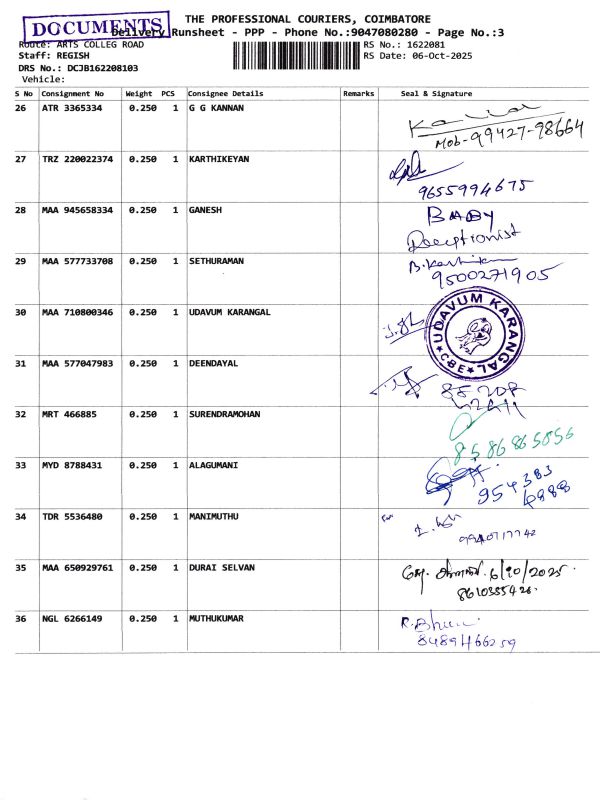 DOCUMENTS
THE PROFESSIONAL COURIERS, COIMBATORE
Delivery Runsheet - PPP - Phone No.:9047080280 - Page No.:3
Route: ARTS COLLEG ROAD RS No.: 1622081
Staff: REGISH RS Date: 06-Oct-2025
DRS No.: DCJB162208103
Vehicle:
S No Consignment No Weight PCS Consignee Details Remarks Seal & Signature
26 ATR 3365334 0.250 1 G G KANNAN
Mob-99427-98664
27 TRZ 220022374 0.250 1 KARTHIKEYAN
9655994675
28 MAA 945658334 0.250 1 GANESH BABY
Receptionist
29 MAA 577733708 0.250 1 SETHURAMAN
9500271905
30 MAA 710800346 0.250 1 UDAVUM KARANGAL
UDAVUM KARANGAL
CBE
31 MAA 577047983 0.250 1 DEENDAYAL
32 MRT 466885 0.250 1 SURENDRAMOHAN
8586865056
33 MYD 8788431 0.250 1 ALAGUMANI
954383
6888
34 TDR 5536480 0.250 1 MANIMUTHU
35 MAA 650929761 0.250 1 DURAI SELVAN 6/10/2025
36 NGL 6266149 0.250 1 MUTHUKUMAR
8489466259